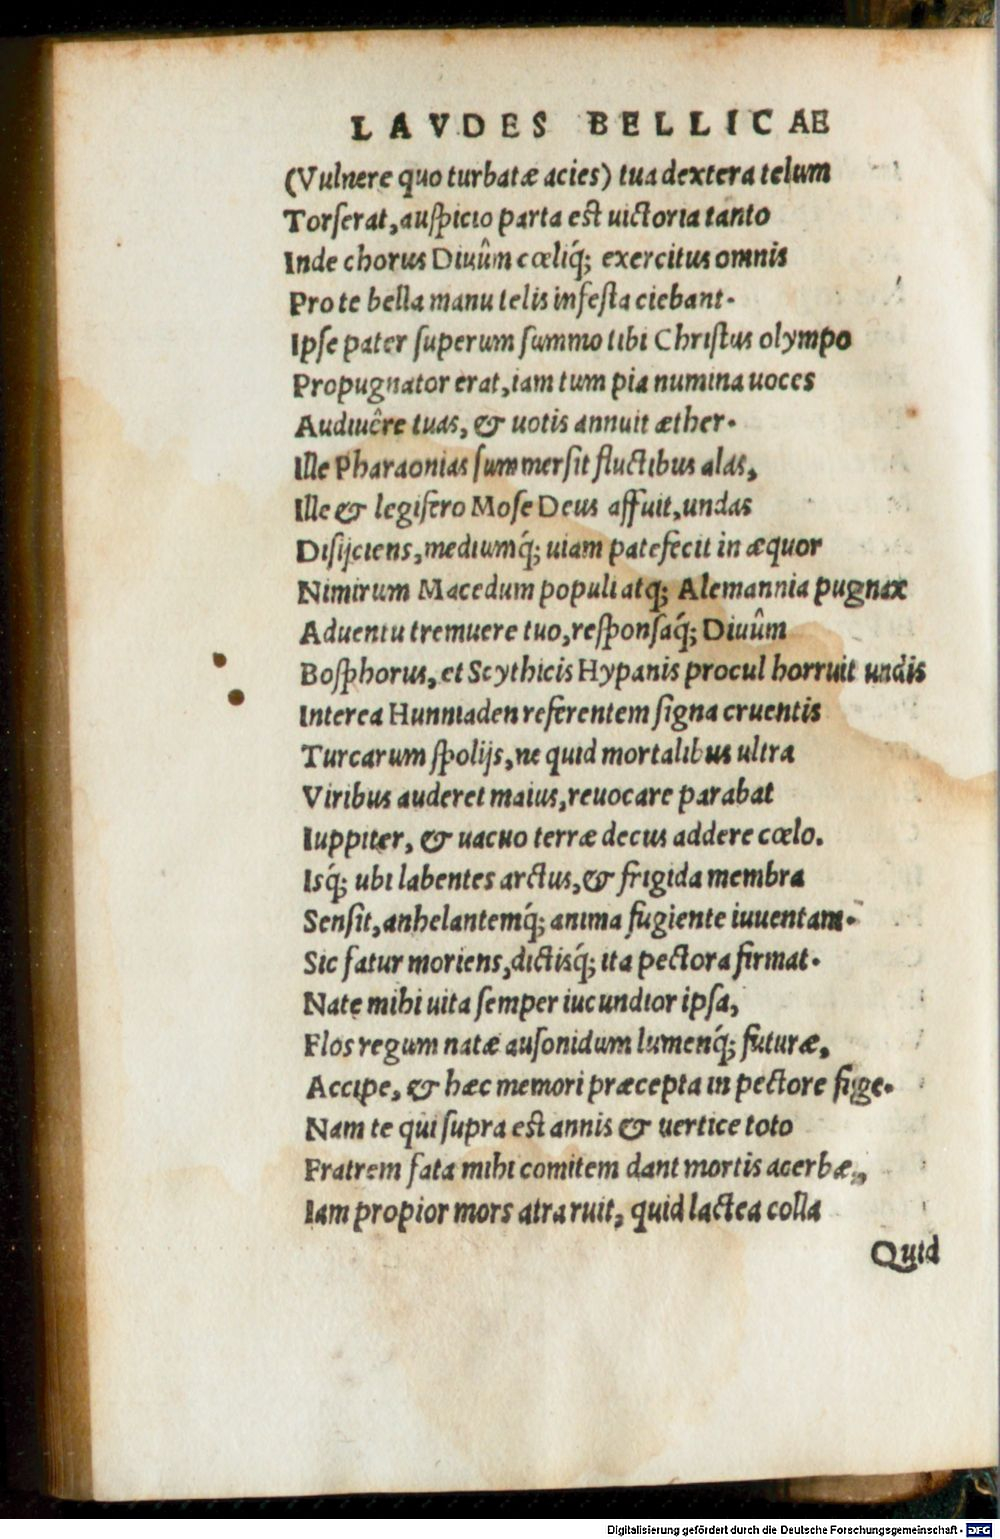 LAVDES BELLICAE
(Vulnere quo turbatæ acies) tua dextera telum
Torserat, auspicio parta est uictoria tanto
Inde chorus Diuûm cœliq́; exercitus omnis
Pro te bella manu telis infesta ciebant.
Ipse pater superum summo tibi Christus olympo
Propugnator erat, iam tum pia numina uoces
Audiuêre tuas, & uotis annuit æther.
Ille Pharaonias summersit fluctibus alas,
Ille & legifero Mose Deus affuit, undas
Disijciens, mediumq́; uiam patefecit in æquor
Nimirum Macedum populi atq; Alemannia pugnax
Aduentu tremuere tuo, responsaq́; Diuûm
Bosphorus, et Scythicis Hypanis procul horruit undis
Interea Hunniaden referentem signa cruentis
Turcarum spolijs, ne quid mortalibus ultra
Viribus auderet maius, reuocare parabat
Iuppiter, & uacuo terræ decus addere cœlo.
Isq́; ubi labentes arctus, & frigida membra
Sensit, anhelantemq́; anima fugiente iuuentam.
Sic fatur moriens, dictisq́; ita pectora firmat.
Nate mihi uita semper iucundior ipsa,
Flos regum natæ ausonidum lumenq́; futuræ,
Accipe, & hæc memori præcepta in pectore fige.
Nam te qui supra est annis & uertice toto
Fratrem fata mihi comitem dant mortis acerbæ,
Iam propior mors atra ruit, quid lactea colla
Quid
Digitalisierung gefördert durch die Deutsche Forschungsgemeinschaft - DFG